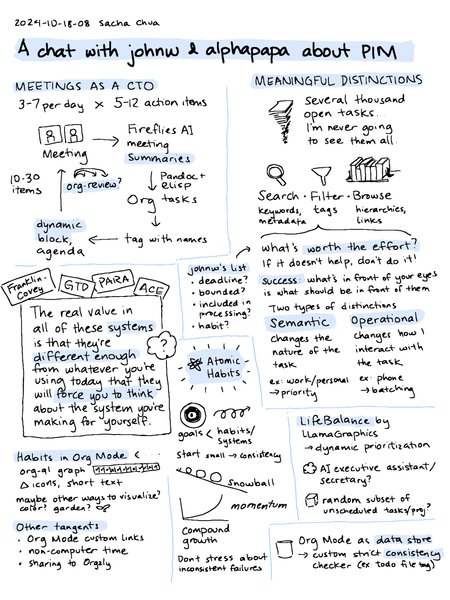 2024-10-18-08 Sacha Chua
A chat with johnw & alphapapa about PIM
MEETINGS AS A CTO
3-7 per day × 5-12 action items
Meeting
Fireflies AI
meeting
Summaries
Pandoc +
elisp
Org tasks
tag with names
dynamic
block,
agenda
10-30
items
org-review?
MEANINGFUL DISTINCTIONS
Several thousand
open tasks...
I'm never going
to see them all.
Search · Filter · Browse
keywords,
metadata
tags
hierarchies,
links
what's worth the effort?
If it doesn't help, don't do it!
Success: what's in front of your eyes
is what should be in front of them
Two types of distinctions
Semantic
changes the
nature of the
task
ex: work/personal
→ priority
Operational
changes how I
interact with
the task
ex: phone
→ batching
Franklin-
Covey
GTD
PARA
ACE
The real value in
all of these systems
is that they're
different enough
from whatever you're
using today that they
will force you to think
about the system you're
making for yourself.
?
johnw's list
• deadline?
• bounded?
• included in
processing?
• habit?
Atomic
Habits
goals < habits/
systems
start small → consistency
snowball
momentum
compound
growth
Don't stress about
inconsistent failures
Habits in Org Mode
org-ql graph
△ icons, short text
maybe other ways to visualize?
color? garden?
Other tangents
• Org Mode custom links
• non-computer time
• sharing to Orgzly
LifeBalance by
LlamaGraphics
→ dynamic prioritization
AI executive assistant/
secretary?
random subset of
unscheduled tasks/proj?
Org Mode as data store
→ custom strict consistency
checker (ex: todo file tag)